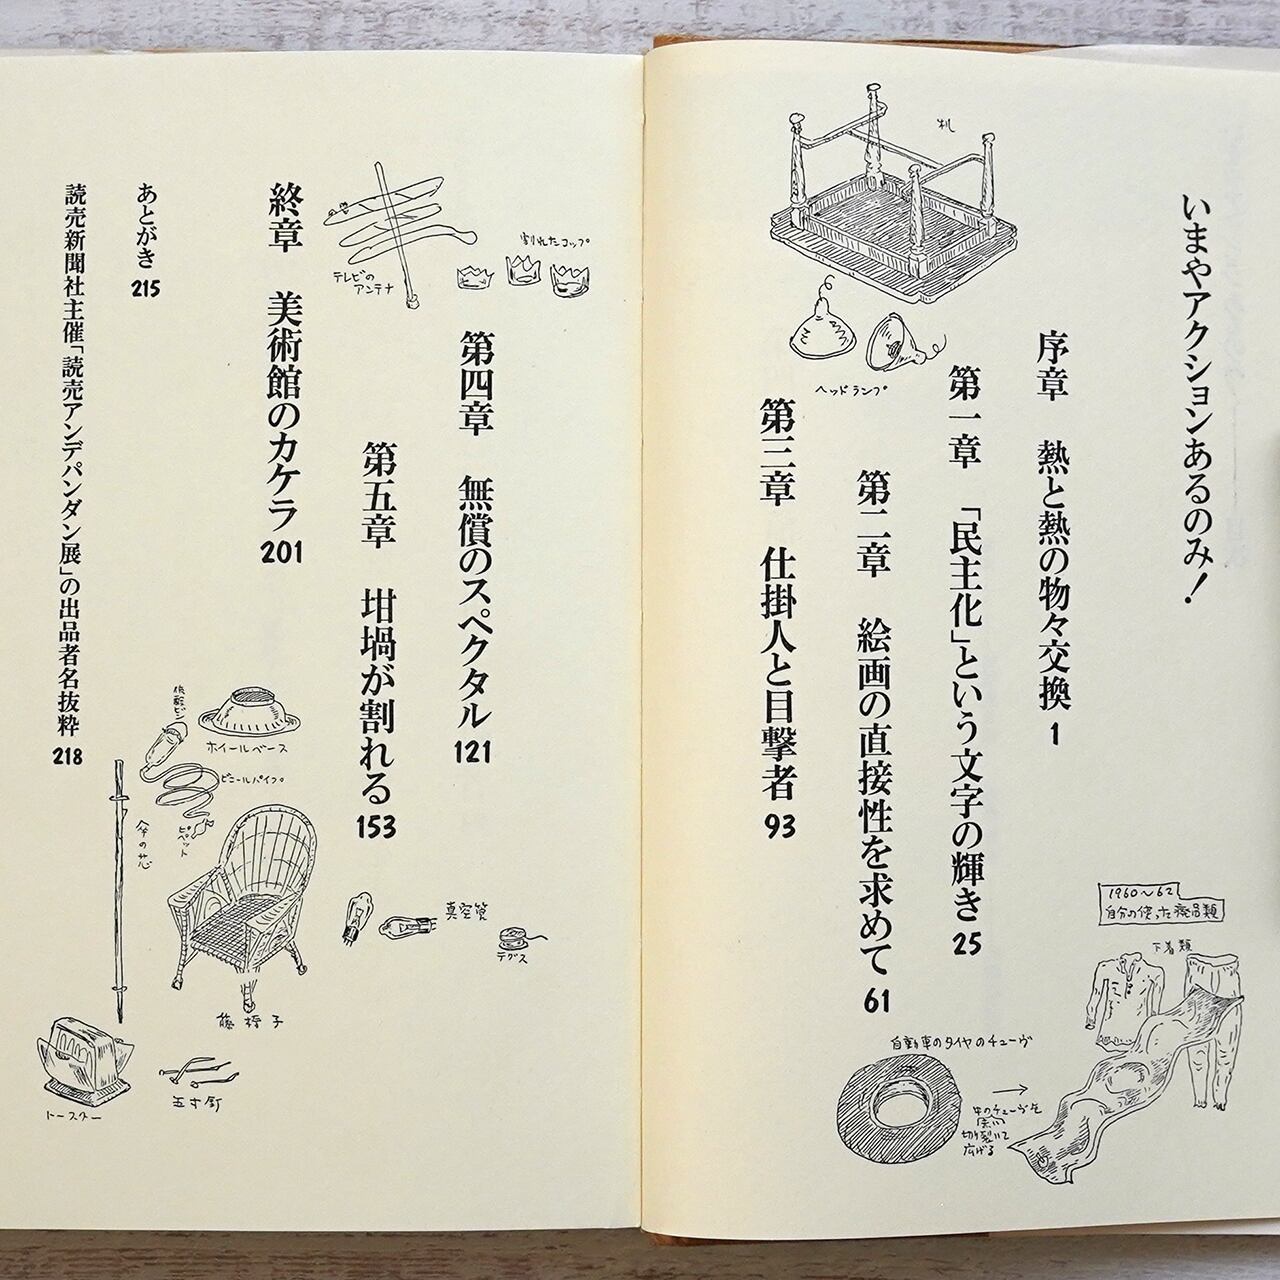 いまやアクションあるのみ!
序章 熱と熱の物々交換 1
第一章 「民主化」という文字の輝き 25
第二章 絵画の直接性を求めて 61
第三章 仕掛人と目撃者 93
机
ヘッドランプ
1960〜62
自分の使った廃品類
下着類
自動車のタイヤのチューヴ
中のチューヴを
切り裂いて
広げる
第四章 無償のスペクタル 121
第五章 坩堝が割れる 153
終章 美術館のカケラ 201
あとがき 215
読売新聞社主催「読売アンデパンダン展」の出品者名抜粋 218
割れたコップ
テレビの
アンテナ
ホイールベース
ビニールパイプ
ピペット
傘の芯
真空管
テグス
籐椅子
五寸釘
トースター